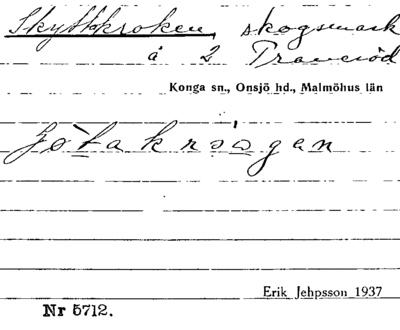 Skyttkroken, skogsmark
å 2 Traneröd
Konga sn., Onsjö hd., Malmöhus län
Erik Jehpsson 1937
Nr 5712.